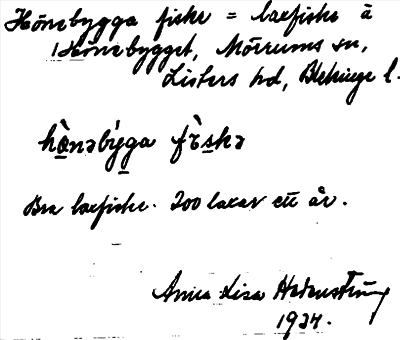 Hönebygga fiske = laxfiske å
Hönebygget, Mörrums sn,
Listers hd, Blekinge l.
hø̀nəbýga fìskə
Bra laxfiske. 200 laxar ett år.
Anna Lisa
1934.